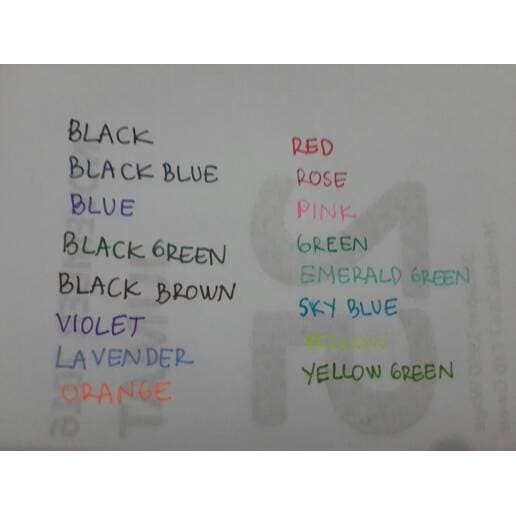 BLACK
BLACK BLUE
BLUE
BLACK GREEN
BLACK BROWN
VIOLET
LAVENDER
ORANGE
RED
ROSE
PINK
GREEN
EMERALD GREEN
SKY BLUE
YELLOW
YELLOW GREEN